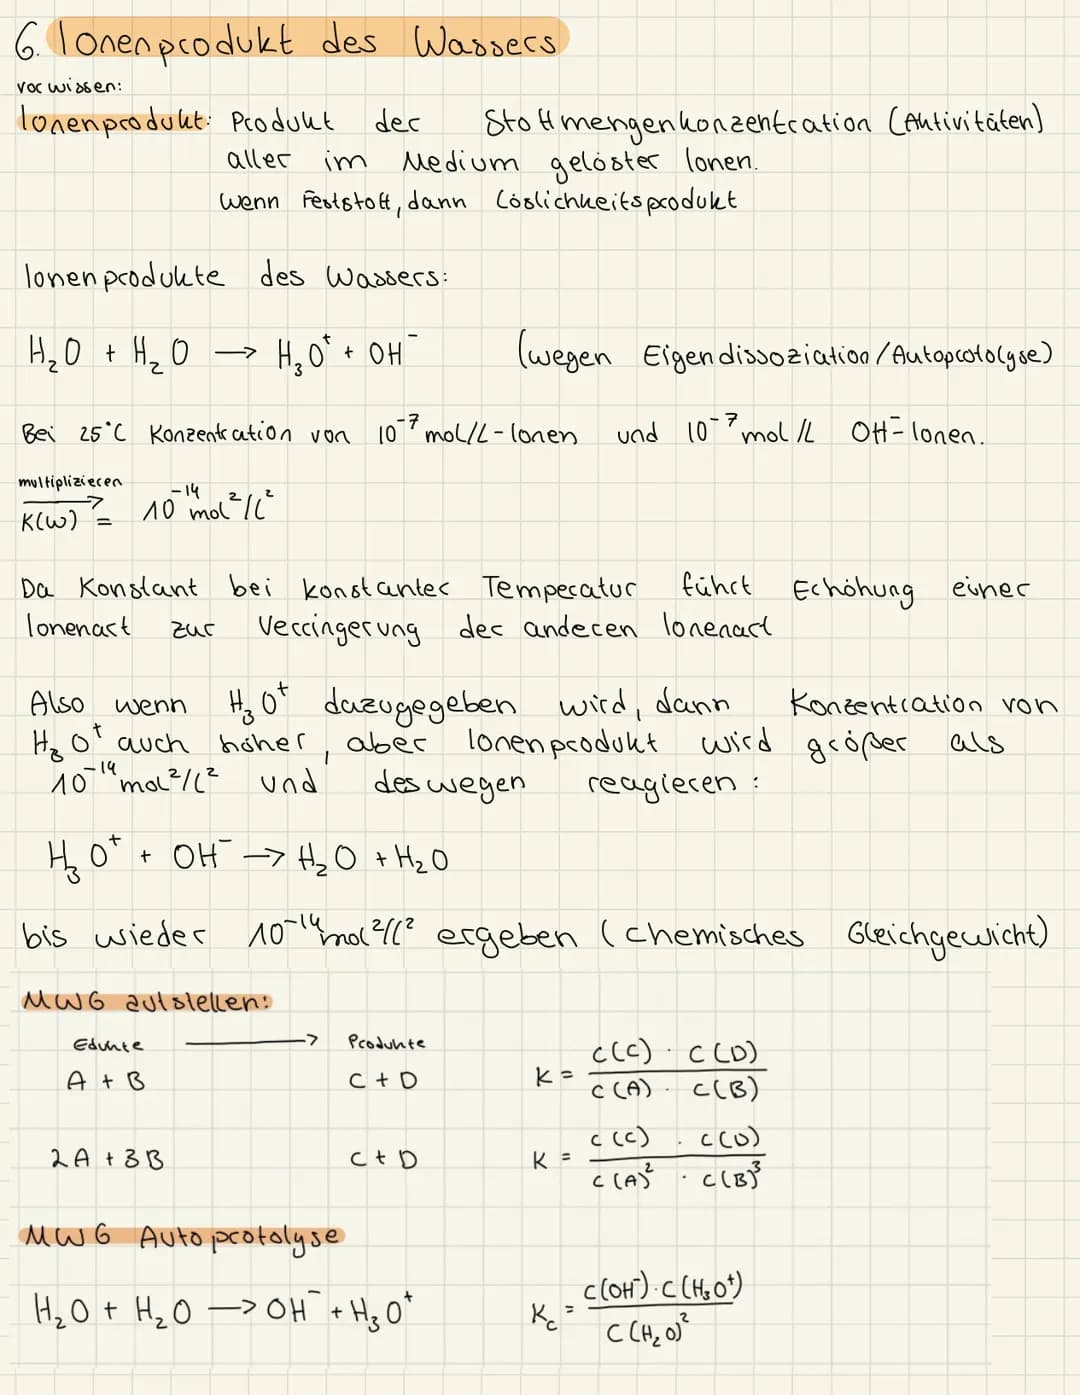 6. Ionenprodukt des Wassers
vorwissen:
Ionenprodukt: Produkt der Stoffmengenkonzentration (Aktivitäten)
aller im Medium gelöster Ionen.
wenn Feststoff, dann Löslichkeitsprodukt
Ionenprodukte des Wassers:
H₂O + H₂O → H₃O⁺ + OH⁻ (wegen Eigendissoziation/Autoprotolyse)
Bei 25°C Konzentration von 10⁻⁷ mol/L-Ionen und 10⁻⁷ mol/L OH⁻Ionen.
multiplizieren
K(w) = 10⁻¹⁴ mol²/l²
Da Konstant bei konstanter Temperatur führt Erhöhung einer
Ionenart zur Verringerung der anderen Ionenart
Also wenn H₃O⁺ dazugegeben wird, dann Konzentration von
H₃O⁺ auch höher, aber Ionenprodukt wird größer als
10⁻¹⁴ mol²/l² und deswegen reagieren:
H₃O⁺ + OH⁻ → H₂O + H₂O
bis wieder 10⁻¹⁴ mol²/l² ergeben (chemisches Gleichgewicht)
MWG aufstellen:
Edukte → Produkte
A + B C + D K = c(C) · c(D) / c(A) · c(B)
2A + 3B C + D K = c(C) · c(D) / c(A)² · c(B)³
MWG Autoprotolyse
H₂O + H₂O → OH⁻ + H₃O⁺ Kc = c(OH⁻) · c(H₃O⁺) / c(H₂O)²